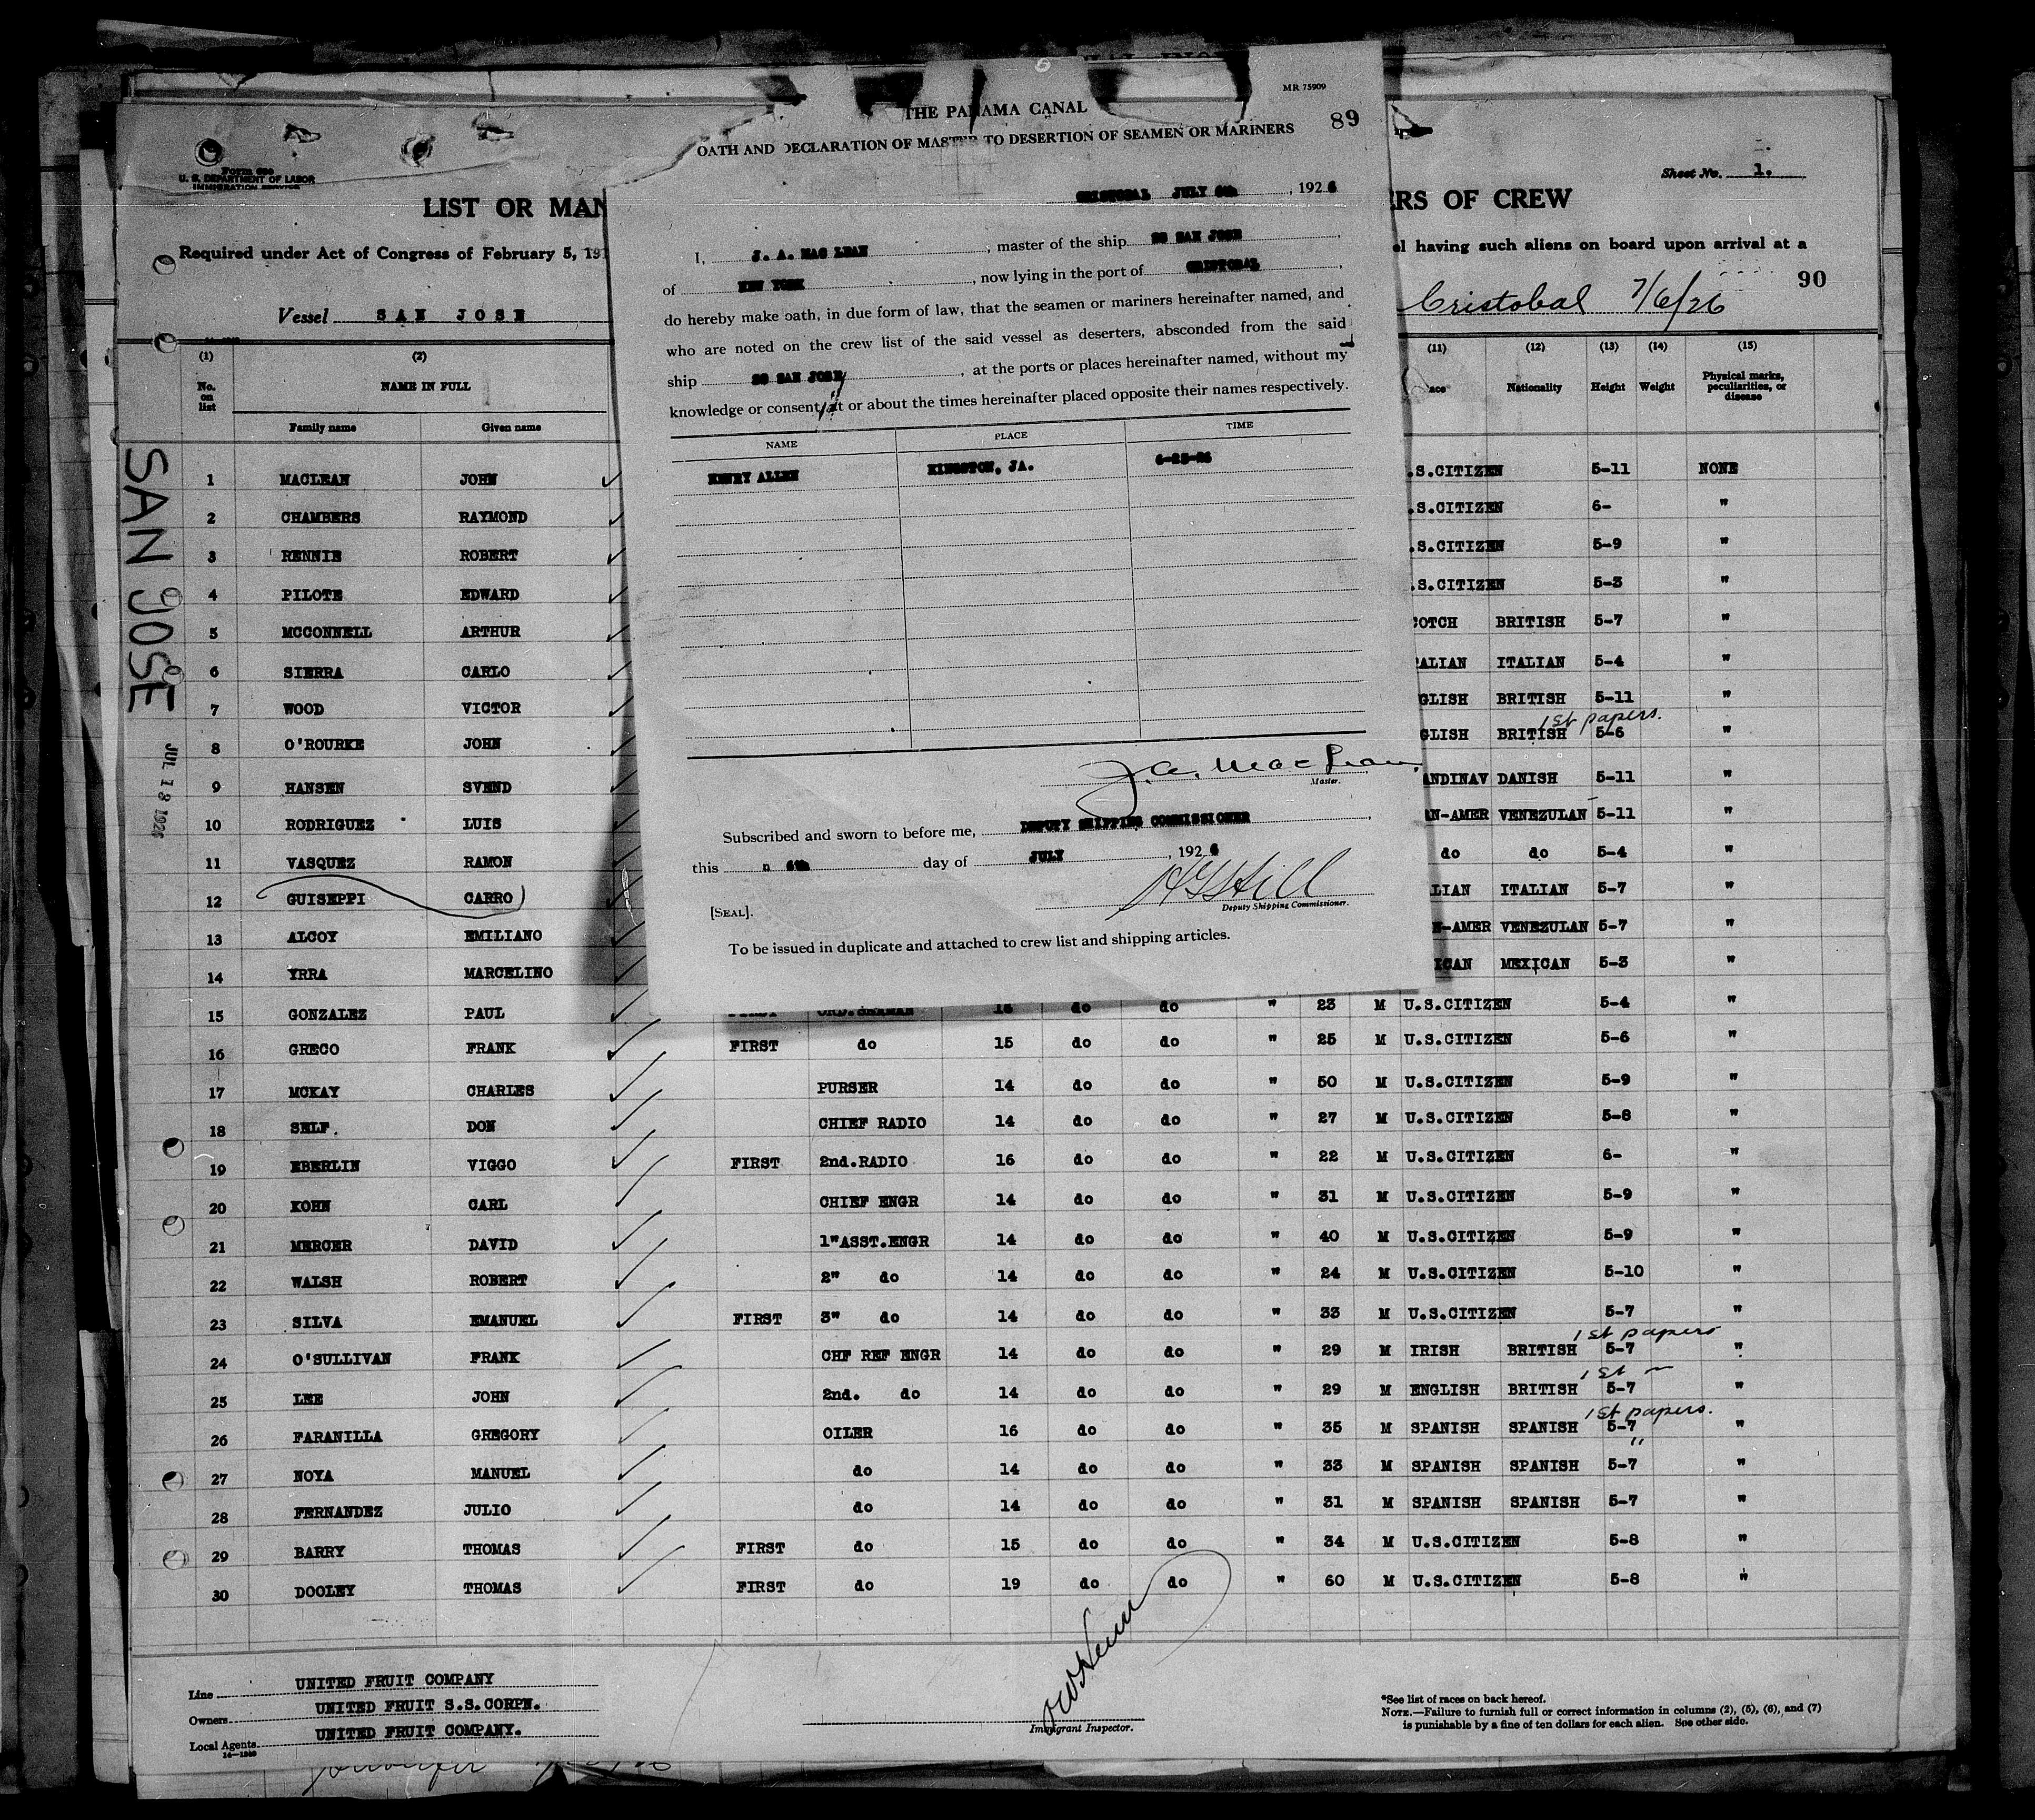 MR 75909
THE PANAMA CANAL
89
OATH AND DECLARATION OF MASTER TO DESERTION OF SEAMEN OR MARINERS
CRISTOBAL JULY 6th, 1926
I, J. A. MAC LEAN, master of the ship SS SAN JOSE,
of NEW YORK, now lying in the port of CRISTOBAL,
do hereby make oath, in due form of law, that the seamen or mariners hereinafter named, and
who are noted on the crew list of the said vessel as deserters, absconded from the said
ship SS SAN JOSE, at the ports or places hereinafter named, without my
knowledge or consent, at or about the times hereinafter placed opposite their names respectively.
NAME PLACE TIME
HENRY ALLEN KINGSTON, JA. 6-25-26
J. A. MacLean
Master.
Subscribed and sworn to before me, DEPUTY SHIPPING COMMISSIONER,
this n 6th day of JULY, 1926
HG Hill
Deputy Shipping Commissioner.
[SEAL].
To be issued in duplicate and attached to crew list and shipping articles.
U. S. DEPARTMENT OF LABOR
IMMIGRATION SERVICE
Sheet No. 1.
LIST OR MAN
RS OF CREW
Required under Act of Congress of February 5, 191
el having such aliens on board upon arrival at a
90
Vessel SAN JOSE
Cristobal 7/6/26
(1) (2) (11) (12) (13) (14) (15)
No. on list NAME IN FULL Nationality Height Weight Physical marks, peculiarities, or disease
Family name Given name
SAN JOSE
JUL 13 1926
1 MACLEAN JOHN .S.CITIZEN 5-11 NONE
2 CHAMBERS RAYMOND .S.CITIZEN 6- "
3 RENNIE ROBERT .S.CITIZEN 5-9 "
4 PILOTE EDWARD .S.CITIZEN 5-3 "
5 MCCONNELL ARTHUR COTCH BRITISH 5-7 "
6 SIERRA CARLO ALIAN ITALIAN 5-4 "
7 WOOD VICTOR GLISH BRITISH 5-11 "
1st papers.
8 O'ROURKE JOHN GLISH BRITISH 5-6 "
9 HANSEN SVEND ANDINAV DANISH 5-11 "
10 RODRIGUEZ LUIS AN-AMER VENEZULAN 5-11 "
11 VASQUEZ RAMON do do 5-4 "
12 GUISEPPI CARRO LIAN ITALIAN 5-7 "
13 ALCOY EMILIANO N-AMER VENEZULAN 5-7 "
14 YRRA MARCELINO ICAN MEXICAN 5-3 "
15 GONZALEZ PAUL FIRST ORD.SEAMAN 16 do do " 23 M U.S.CITIZEN 5-4 "
16 GRECO FRANK FIRST do 15 do do " 25 M U.S.CITIZEN 5-6 "
17 MCKAY CHARLES PURSER 14 do do " 50 M U.S.CITIZEN 5-9 "
18 SELF. DON CHIEF RADIO 14 do do " 27 M U.S.CITIZEN 5-8 "
19 EBERLIN VIGGO FIRST 2nd.RADIO 16 do do " 22 M U.S.CITIZEN 6- "
20 KOHN CARL CHIEF ENGR 14 do do " 31 M U.S.CITIZEN 5-9 "
21 MERCER DAVID 1"ASST.ENGR 14 do do " 40 M U.S.CITIZEN 5-9 "
22 WALSH ROBERT 2" do 14 do do " 24 M U.S.CITIZEN 5-10 "
23 SILVA EMANUEL FIRST 3" do 14 do do " 33 M U.S.CITIZEN 5-7 "
1st papers
24 O'SULLIVAN FRANK CHF REF ENGR 14 do do " 29 M IRISH BRITISH 5-7 "
1st "
25 LEE JOHN 2nd. do 14 do do " 29 M ENGLISH BRITISH 5-7 "
1st papers.
26 FARANILLA GREGORY OILER 16 do do " 35 M SPANISH SPANISH 5-7 "
"
27 NOYA MANUEL do 14 do do " 33 M SPANISH SPANISH 5-7 "
28 FERNANDEZ JULIO do 14 do do " 31 M SPANISH SPANISH 5-7 "
29 BARRY THOMAS FIRST do 15 do do " 34 M U.S.CITIZEN 5-8 "
30 DOOLEY THOMAS FIRST do 19 do do " 60 M U.S.CITIZEN 5-8 "
Line UNITED FRUIT COMPANY
Owners UNITED FRUIT S.S.CORPN.
Local Agents UNITED FRUIT COMPANY.
14-1240
Immigrant Inspector.
*See list of races on back hereof.
NOTE.—Failure to furnish full or correct information in columns (2), (5), (6), and (7)
is punishable by a fine of ten dollars for each alien. See other side.